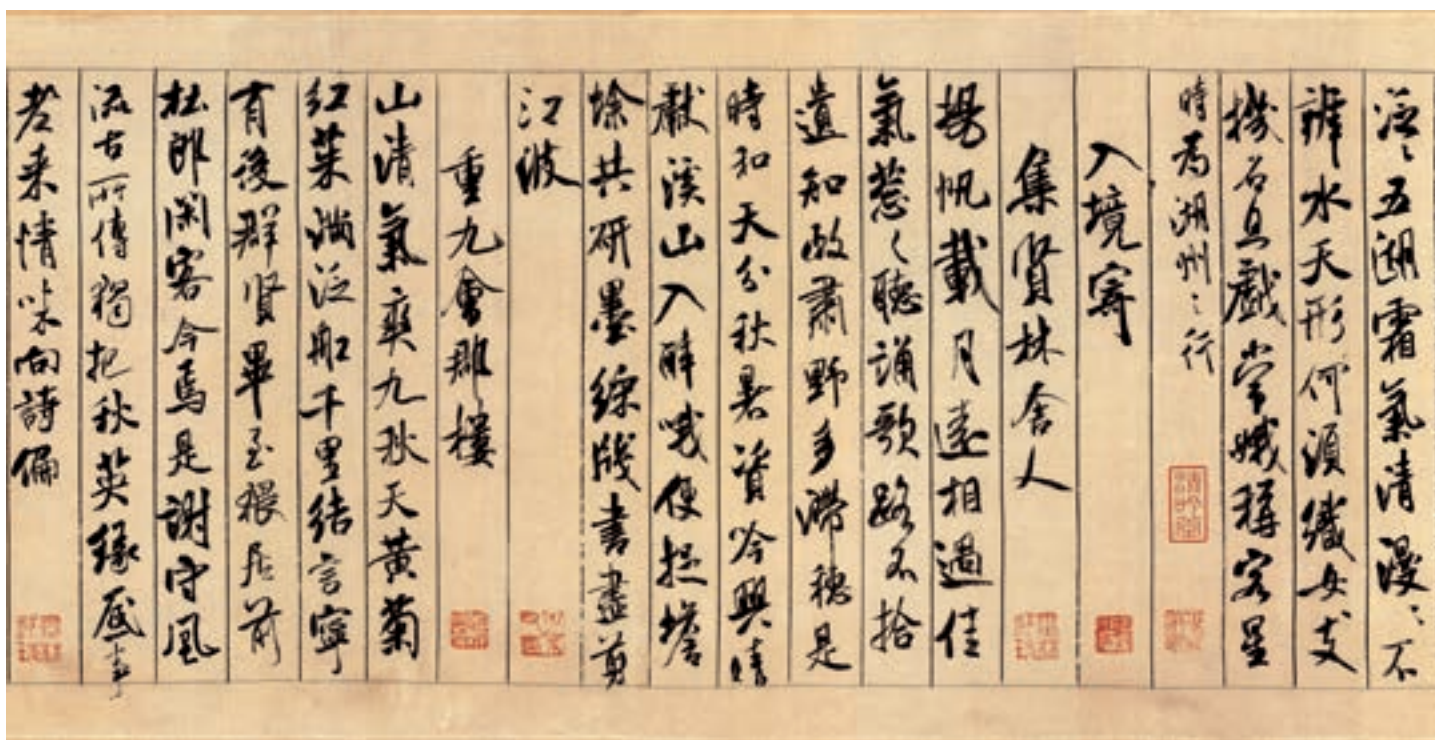 泛〻五湖霜氣清漫〻不
辨水天形何須織女支
機石且戲常娥稱客星
時為湖州之行
入境寄
集賢林舍人
揚帆載月遠相過佳
氣蔥〻聽誦歌路不拾
遺知政肅野多滯穗是
時和天分秋暑資吟興晴
獻溪山入醉哦便捉蟾
蜍共研墨綵牋書盡剪
江波
重九會郡樓
山清氣爽九秋天黃菊
紅茱滿泛船千里結言寧
有後群賢畢至猥居前
杜郎閑客今焉是謝守風
流古所傳獨把秋英緣底事
老來情味向詩偏